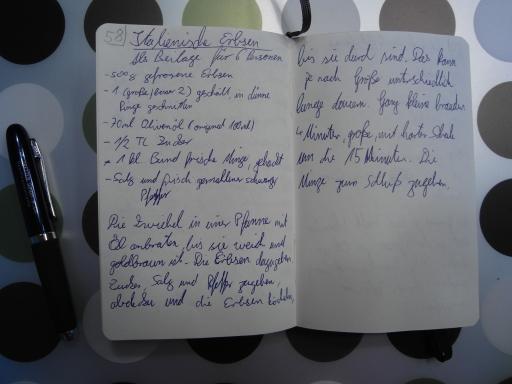 58 Italienische Erbsen
Als Beilage für 6 Personen
- 500g gefrorene Erbsen
- 1 (große/einer 2) geschält, in dünne
Ringe geschnitten
- 70ml Olivenöl (original 100ml)
- 1/2 TL Zucker
- 1 kl. Bund frische Minze, gehackt
- Salz und frisch gemahlener schwarzer
Pfeffer
Die Zwiebel in einer Pfanne mit
Öl anbraten, bis sie weich und
goldbraun ist. Die Erbsen dazugeben.
Zucker, Salz und Pfeffer zugeben,
abdecken und die Erbsen köcheln,
bis sie durch sind. Das kann
je nach Größe unterschiedlich
lange dauern. Ganz kleine brauchen
4 Minuten, große, mit harter Schale
um die 15 Minuten. Die
Minze zum Schluß zugeben.